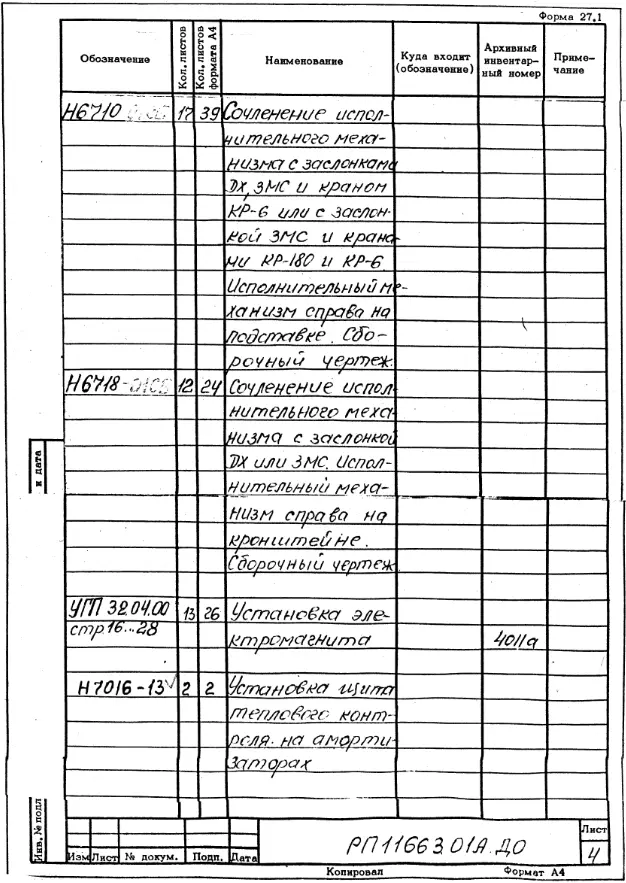 Форма 27.1
Обозначение
Кол. листов
Кол. листов формата А4
Наименование
Куда входит (обозначение)
Архивный инвентарный номер
Примечание
Н6710 17 39 Сочленение испол-
нительного меха-
низма с заслонками
DX, ЗМС и краном
КР-6 или с заслон-
кой ЗМС и крана-
ми КР-180 и КР-6.
Исполнительный ме-
ханизм справа на
подставке. Сбо-
рочный чертеж.
Н6718-01СБ 12 24 Сочленение испол-
нительного меха-
низма с заслонкой
DX или ЗМС. Испол-
нительный меха-
низм справа на
кронштейне.
Сборочный чертеж
УГП 32.04.00 13 26 Установка эле-
стр. 16...28 ктромагнита 4011а
Н7016-13 2 2 Установка щита
теплового конт-
роля на аморти-
заторах
и дата
Инв. № подл
Изм Лист № докум. Подп. Дата
РП11663.01А.ДО
Лист
4
Копировал Формат А4